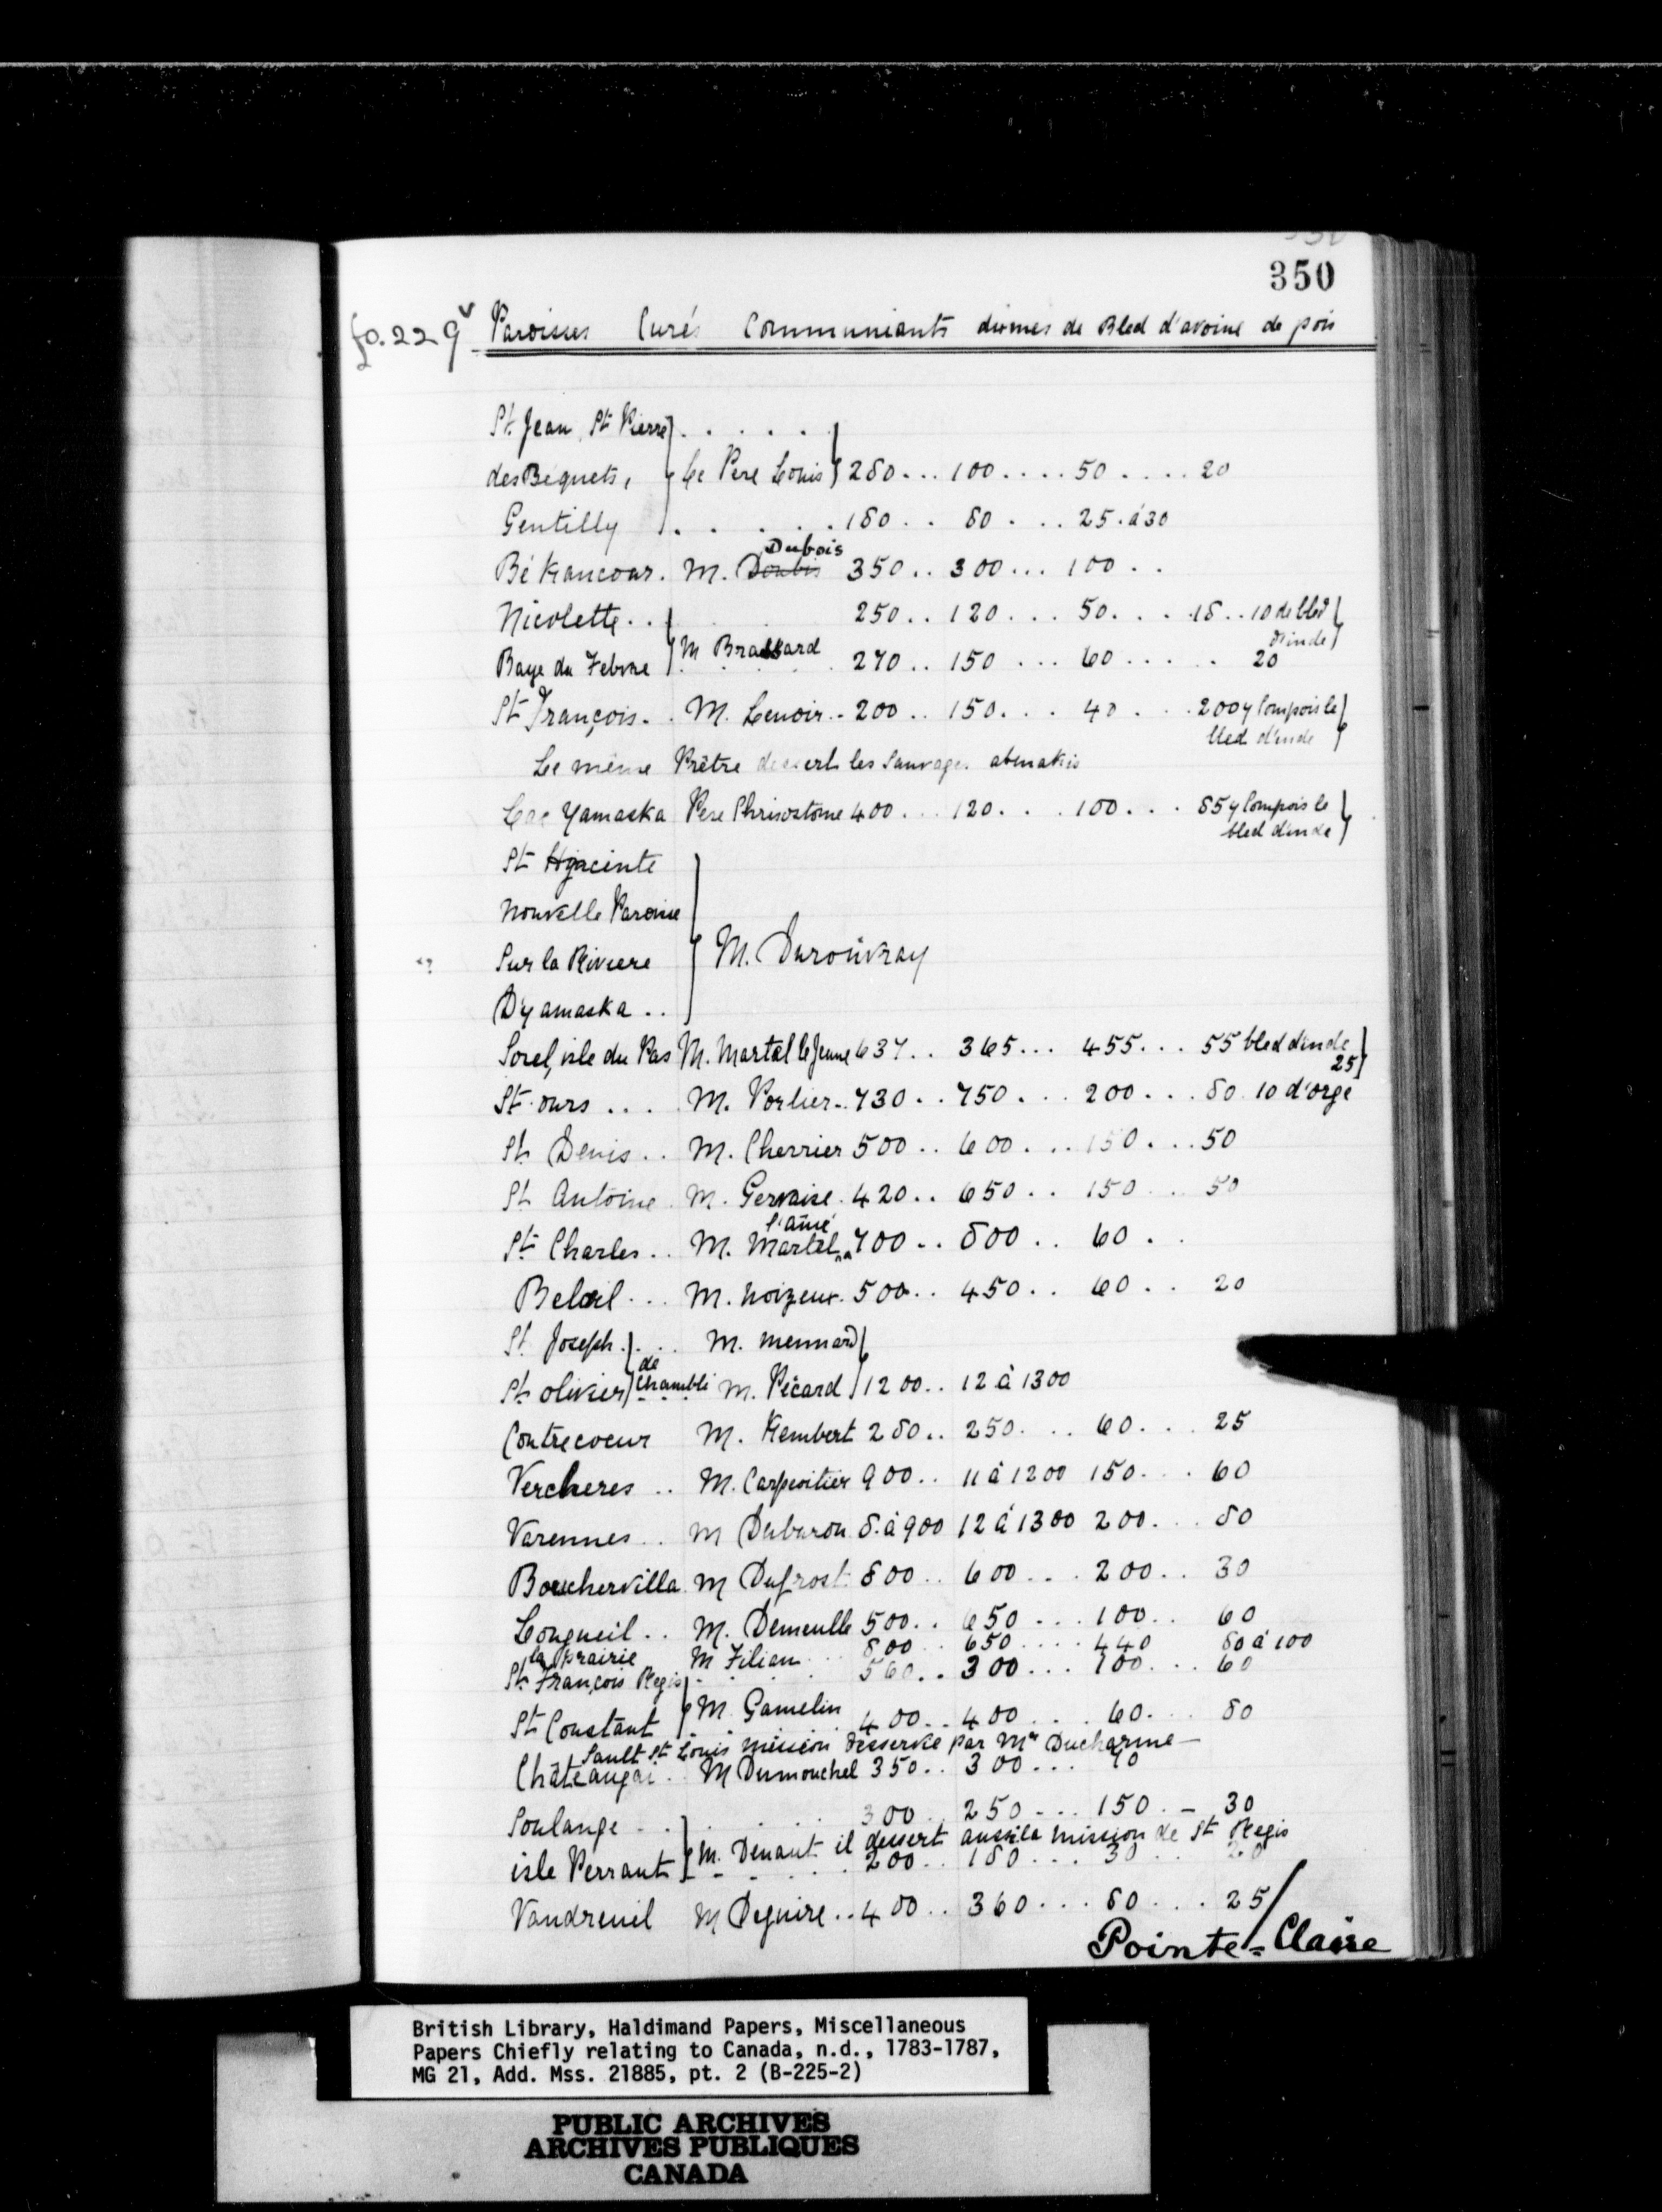 350
fo. 229v Paroisses Curés Communiants dixmes de Bled d'avoine de pois
St. Jean, St. Pierre . . . . .
des Bequets, Le Pere Louis 280... 100.... 50.... 20
Gentilly . . . . . 180.. 80.... 25. à 30
Dubois
Békancour. M. Doubis 350.. 300... 100..
Nicolette.. 250.. 120... 50.... 18.. 10 de bled
d'inde
Baye du Febvre M Brassard 270.. 150... 60..... 20
St. François.. M. Lenoir.. 200.. 150... 40... 200 y compois le
bled d'inde
Le même Prêtre dessert les Sauvages abenakis
Lac Yamaska Pere Chrisostome 400... 120... 100... 85 y compois le
bled d'inde
St. Hyacinte
Nouvelle Paroisse
Sur la Riviere M. Durouvray
D'yamaska..
Sorel, isle du Pas M. Martel le Jeune 637.. 365... 455... 55 bled d'inde
25
St. ours.... M. Porlier.. 730.. 750... 200... 80. 10 d'orge
St. Denis.. M. Cherrier 500.. 600... 150... 50
St. Antoine. M. Gervaise. 420.. 650.. 150... 50
l'ainé
St. Charles.. M. Martel 700.. 800.. 60..
Beloeil... M. Noizeux. 500.. 450.. 60.. 20
St. Joseph... M. Mennard
St. olivier de Chambli M. Picard 1200.. 12 à 1300
Contrecoeur M. Kembert 280.. 250... 60... 25
Vercheres.. M. Carpentier 900.. 11 à 1200 150... 60
Varennes.. M Dubaron 8. à 900 12 à 1300 200... 80
Bouchervilla. M Dufrost. 800.. 600... 200.. 30
Longueil.. M. Demeulle 500.. 650... 100.. 60
la prairie M Filiau... 800.. 650.... 440 80 à 100
St. François Regis . . . 560.. 300... 100... 60
St. Constant M. Gamelin 400.. 400... 60... 80
Sault St. Louis mission desservie par Mr. Ducharme —
Châteaugai.. M Dumouchel 350.. 300... 90
Soulange... 300.. 250... 150.. — 30
M. Denaut il dessert aussi la mission de St. Regis
isle Perraut . . . 200.. 180... 30.. 20
Vaudreuil M Deguire.. 400.. 360... 80... 25
Pointe=Claire
British Library, Haldimand Papers, Miscellaneous
Papers Chiefly relating to Canada, n.d., 1783-1787,
MG 21, Add. Mss. 21885, pt. 2 (B-225-2)
PUBLIC ARCHIVES
ARCHIVES PUBLIQUES
CANADA